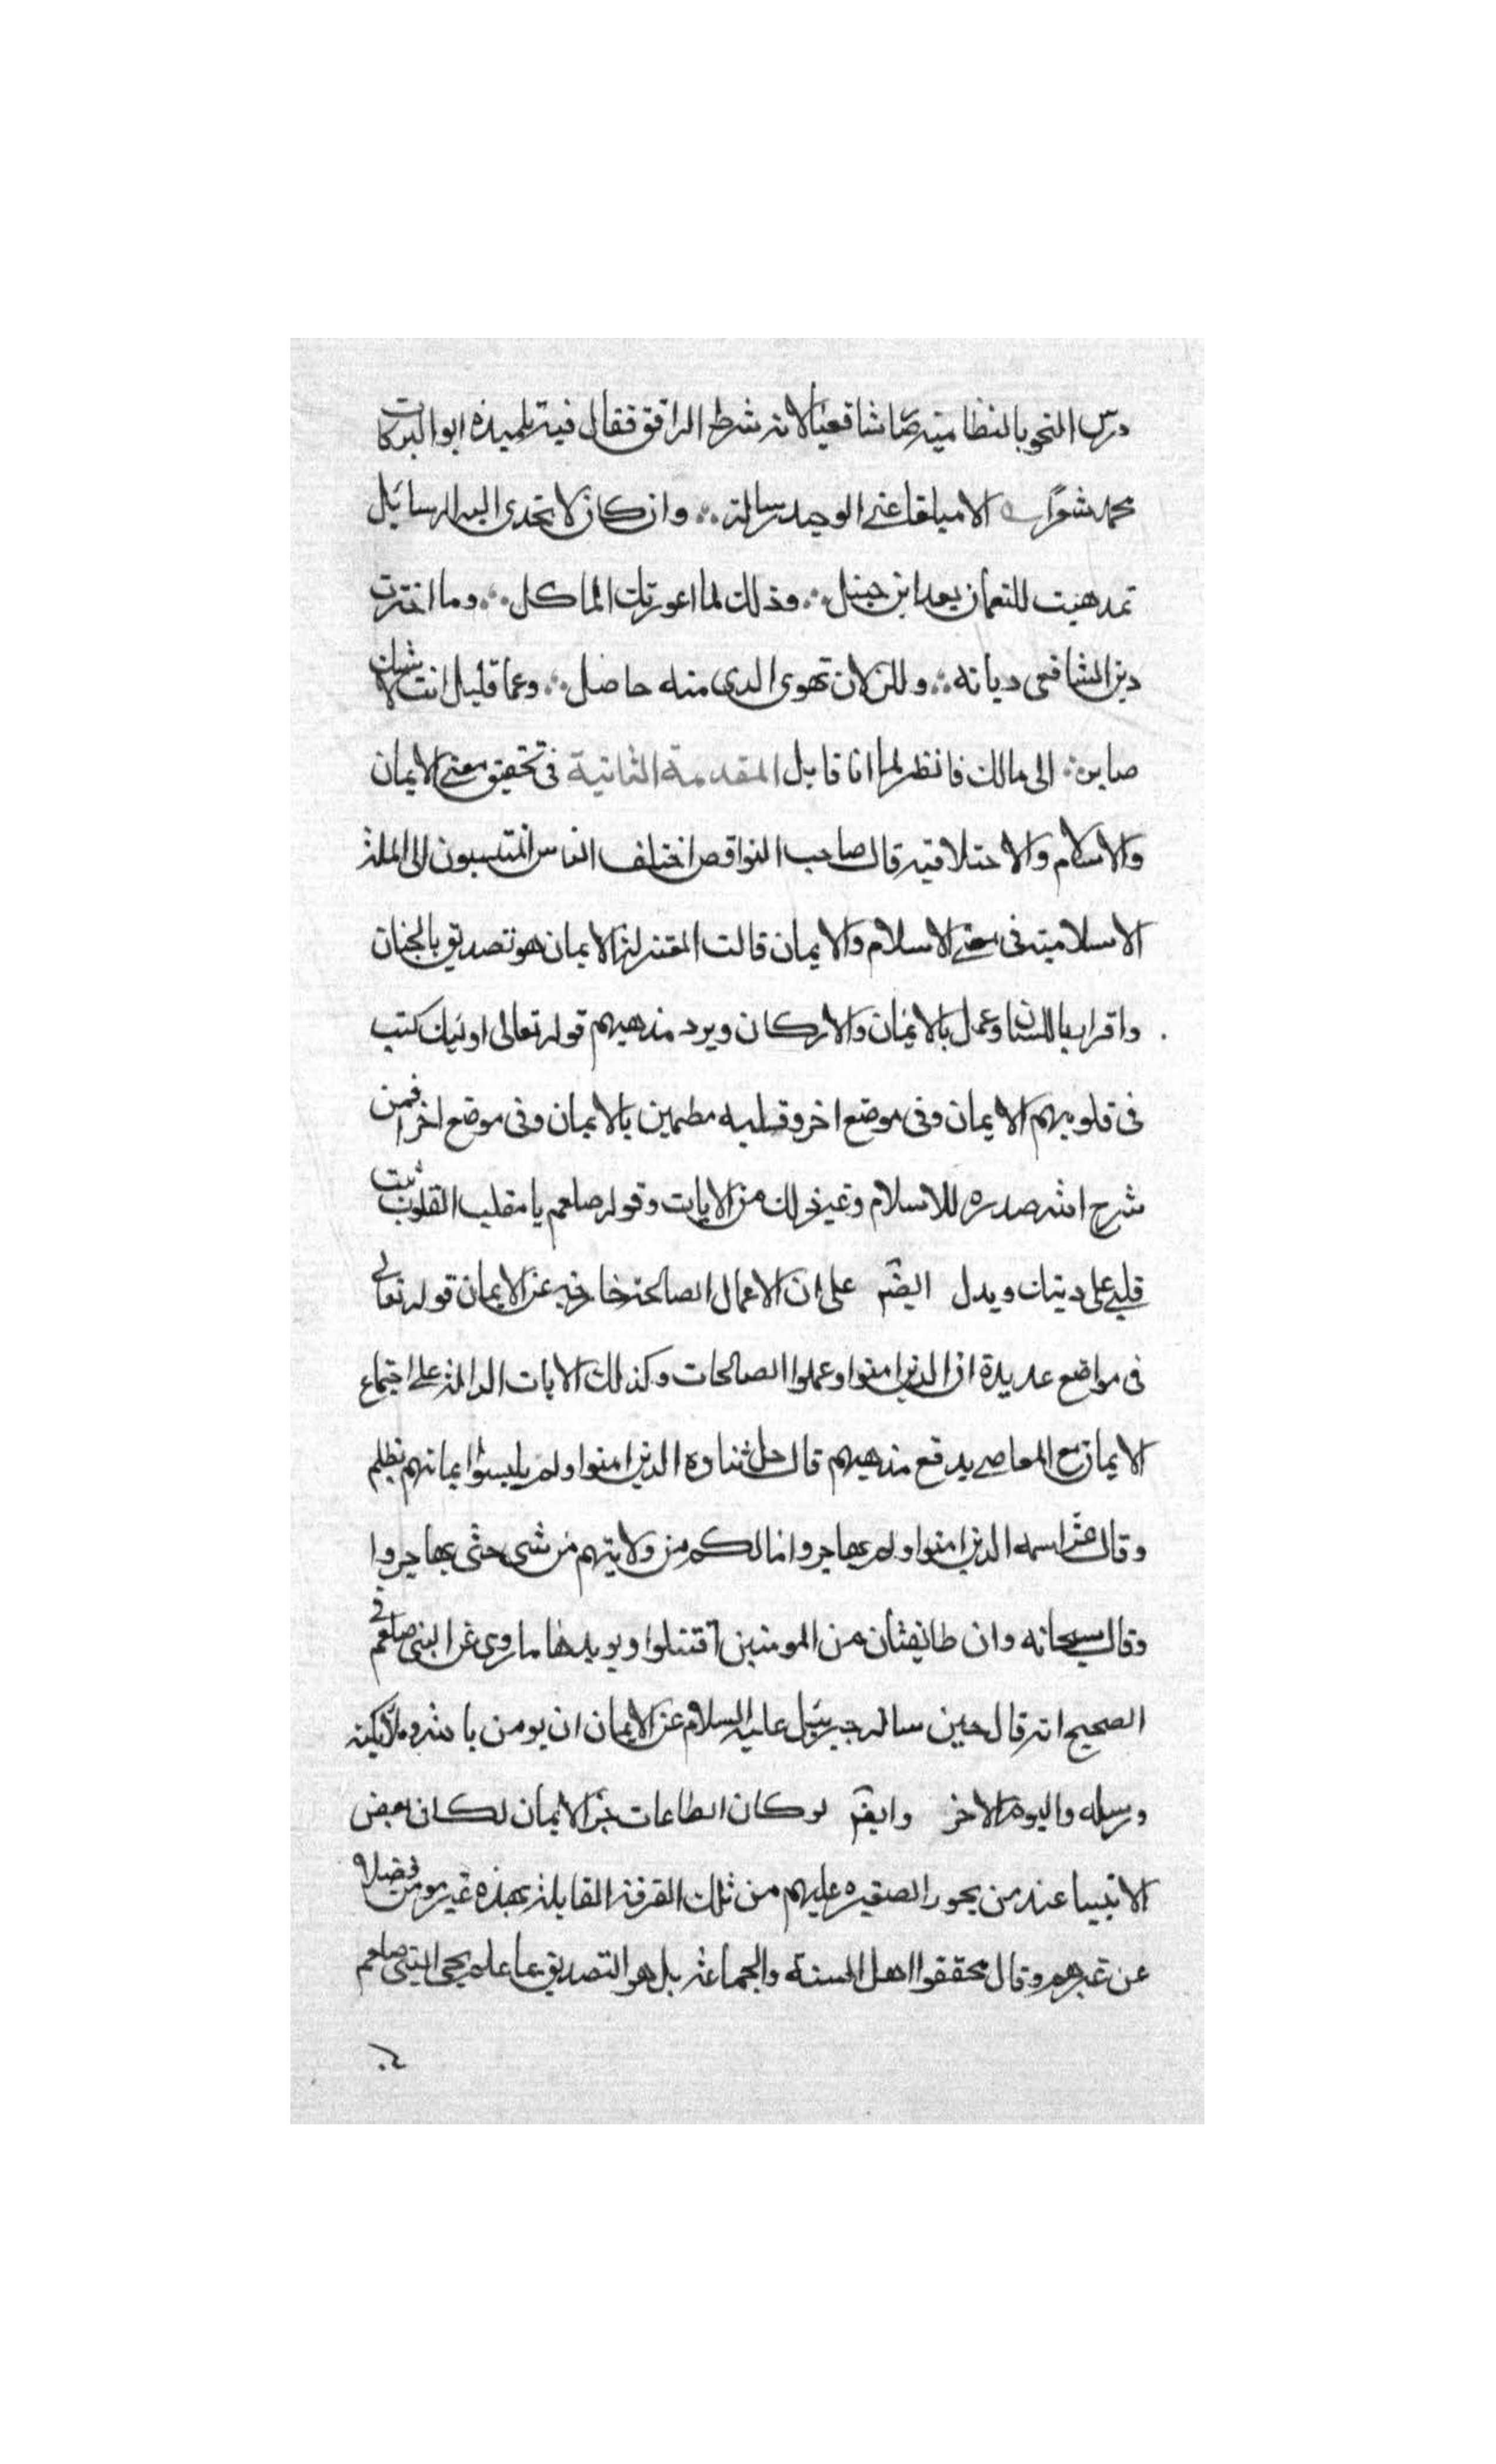 درس النحو بالنظامية صار شافعيا لانه شرط الواقف فقال فيه تلميذه ابوالبركات
محمد شعرًا الا مبلغا عني الوجيه رسالة ∴ وان كان لا تجدى اليه الرسائل
تمذهبت للنعمان بعد ابن حنبل ∴ وذلك لما اعوزتك الماكل ∴ وما اخترت
دين الشافعى ديانه ∴ ولكن لان تهوى الذى منه حاصل ∴ وعما قليل انت لا شك
صاير ∴ الى مالك فانظر لما انا قايل المقدمة الثانية فى تحقيق معنى الايمان
والاسلام والاختلافيه قال صاحب النواقص اختلف الناس المنتسبون الى الملة
الاسلامية فى معنى الاسلام والايمان قالت المعتزلة الايمان هو تصديق بالجنان
واقرار باللسان وعمل بالايمان والاركان ويرد مذهبهم قوله تعالى اوليك كتب
فى قلوبهم الايمان وفى موضع اخر وقلبه مطمين بالايمان وفى موضع اخر افمن
شرح الله صدره للاسلام وغير ذلك من الايات وقوله صلعم يا مقلب القلوب ثبت
قلبي على دينك ويدل ايضم على ان الاعمال الصالحة خارجه عن الايمان قوله تعالى
فى مواضع عديدة ان الذين امنوا وعملوا الصالحات وكذلك الايات الدالة على اجتماع
الايمان مع المعاصي يدفع مذهبهم قال جل ثناوه الذين امنوا ولم يلبسوا ايمانهم بظلم
وقال عز اسمه الذين امنوا ولم يهاجروا مالكم من ولايتهم من شى حتى يهاجروا
وقال سبحانه وان طائفتان من المومنين اقتتلوا ويويدها ما روى عن النبى صلعم فى
الصحيح انه قال حين ساله جبرييل عليه السلام عن الايمان ان يومن بالله وملائكته
ورسله واليوم الاخر وايضم لو كان الطاعات جزء الايمان لكان بعض
الانبيا عند من يجوز الصغيره عليهم من تلك الفرقة القايلة بهذه غير مومن فضلا
عن غيرهم وقال محققوا اهل السنة والجماعة بل هو التصديق بما علم يجى النبى صلعم